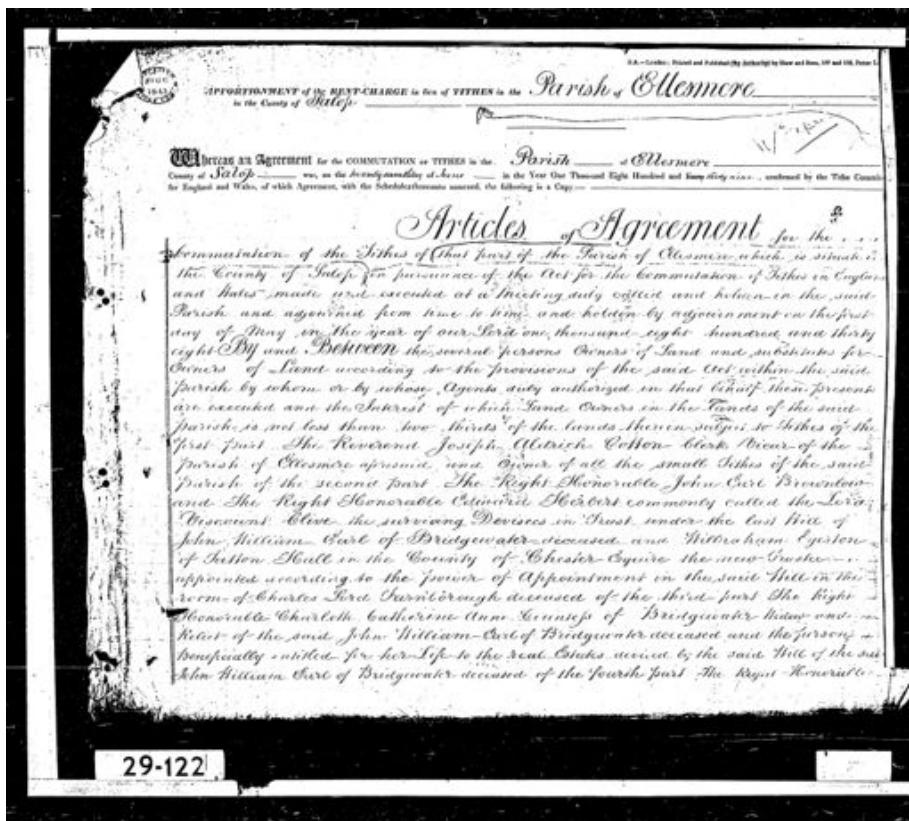 S.A.—London: Printed and Published (By Authority) by Shaw and Sons,
1841
APPORTIONMENT of the RENT-CHARGE in lieu of TITHES in the Parish of Ellesmere
in the County of Salop
Whereas an Agreement for the COMMUTATION OF TITHES in the Parish of Ellesmere
County of Salop was, on the of June in the Year One Thousand Eight Hundred and thirty nine, confirmed by the Tithe
for England and Wales, of which Agreement, with the Schedule thereunto annexed, the following is a Copy—
Articles of Agreement for the
Commutation of the Tithes of that part of the Parish of Ellesmere which is situate
the County of Salop in pursuance of the Act for the Commutation of Tithes in England
and Wales made and executed at a Meeting duly called and holden in the said
Parish and adjourned from time to time and holden by adjournment on the first
day of May in the year of our Lord one thousand eight hundred and thirty
eight By and Between the several persons Owners of Land and substitutes for
Owners of Land according to the provisions of the said Act within the said
parish by whom or by whose Agents duly authorized in that behalf these presents
are executed and the Interest of which Land Owners in the Lands of the said
parish is not less than two thirds of the lands therein subject to Tithes of the
first part The Reverend Joseph Aldrich Cotton Clerk Vicar of the
parish of Ellesmere aforesaid and Owner of all the small Tithes of the said
parish of the second part The Right Honorable John Earl Brownlow
and The Right Honorable Edward Herbert commonly called the Lord
Viscount Clive the surviving Devisees in Trust under the last Will of
John William Earl of Bridgewater deceased and Wilbraham Egerton
of Tatton Hall in the County of Chester Esquire the new Trustee
appointed according to the power of Appointment in the said Will in the
room of Charles Lord Farnborough deceased of the third part The Right
Honorable Charlotte Catherine Anne Countess of Bridgewater Widow and
Relict of the said John William Earl of Bridgewater deceased and the person
Beneficially entitled for her Life to the real Estates devised by the said Will of the said
John William Earl of Bridgewater deceased of the fourth part The Right Honorable
29-122